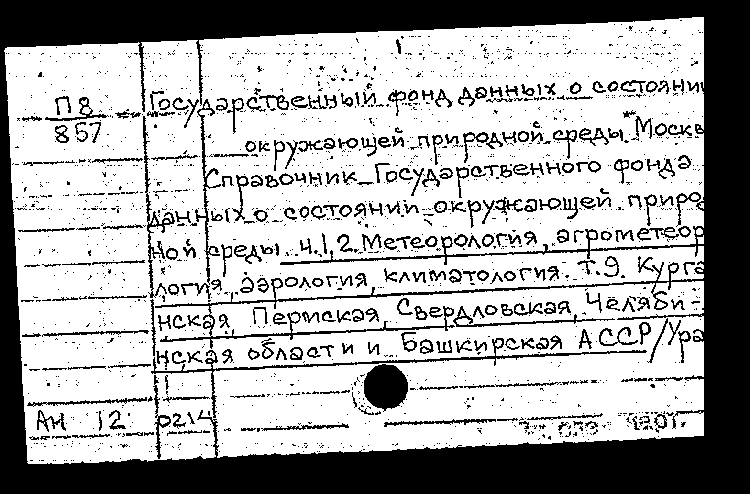 П8
857
Государственный фонд данных о состояни
окружающей природной среды Москв
Справочник Государственного фонда
данных о состоянии окружающей природ
ной среды. ч.1,2. Метеорология, агрометеор
логия, аэрология, климатология. т.9. Курга
нская, Пермская, Свердловская, Челяби-
нская области и Башкирская АССР/Ура
АН 12 0214